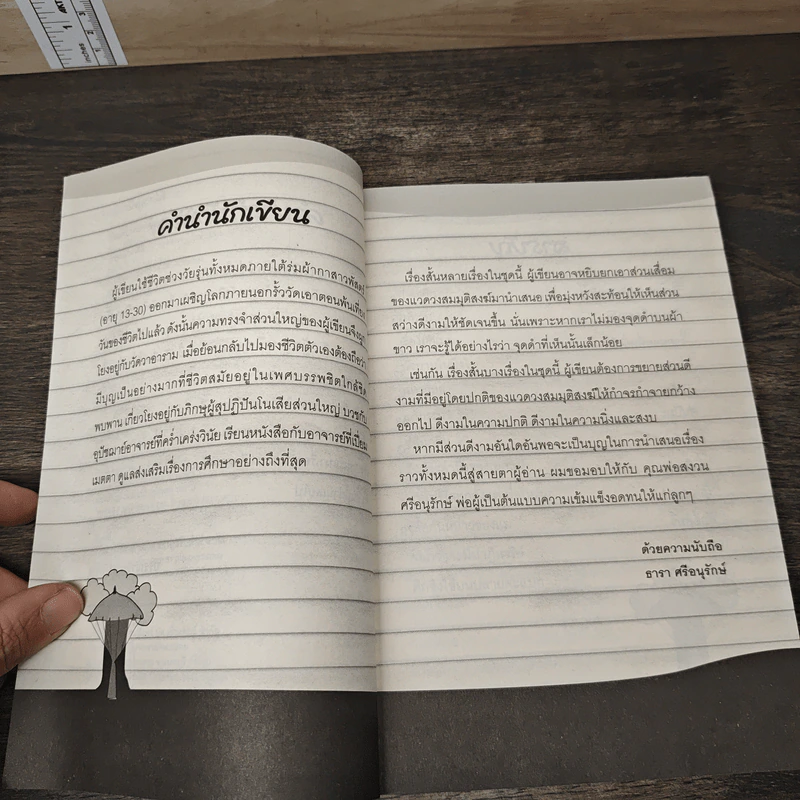 คำนำนักเขียน
ผู้เขียนใช้ชีวิตช่วงวัยรุ่นทั้งหมดภายใต้ร่มผ้ากาสาวพัสตร์
(อายุ 13-30) ออกมาเผชิญโลกภายนอกรั้ววัดเอาตอนพันเที่ยง
วันของชีวิตไปแล้ว ดังนั้นความทรงจำส่วนใหญ่ของผู้เขียนจึงผูก
โยงอยู่กับวัดวาอาราม เมื่อย้อนกลับไปมองชีวิตตัวเองต้องถือว่า
มีบุญเป็นอย่างมากที่ชีวิตสมัยอยู่ในเพศบรรพชิตใกล้ชิด
พบพาน เกี่ยวโยงอยู่กับภิกษุผู้สุปฏิปันโนเสียส่วนใหญ่ บวชกับ
อุปัชฌาย์อาจารย์ที่คร่ำเคร่งวินัย เรียนหนังสือกับอาจารย์ที่เปี่ยม
เมตตา ดูแลส่งเสริมเรื่องการศึกษาอย่างถึงที่สุด
เรื่องสั้นหลายเรื่องในชุดนี้ ผู้เขียนอาจหยิบยกเอาส่วนเสื่อม
ของแวดวงสมมุติสงฆ์มานำเสนอ เพื่อมุ่งหวังสะท้อนให้เห็นส่วน
สว่างดีงามให้ชัดเจนขึ้น นั่นเพราะหากเราไม่มองจุดดำบนผ้า
ขาว เราจะรู้ได้อย่างไรว่า จุดดำที่เห็นนั้นเล็กน้อย
เช่นกัน เรื่องสั้นบางเรื่องในชุดนี้ ผู้เขียนต้องการขยายส่วนดี
งามที่มีอยู่โดยปกติของแวดวงสมมุติสงฆ์ให้กำจรกำจายกว้าง
ออกไป ดีงามในความปกติ ดีงามในความนิ่งและสงบ
หากมีส่วนดีงามอันใดอันพอจะเป็นบุญในการนำเสนอเรื่อง
ราวทั้งหมดนี้สู่สายตาผู้อ่าน ผมขอมอบให้กับ คุณพ่อสงวน
ศรีอนุรักษ์ พ่อผู้เป็นต้นแบบความเข้มแข็งอดทนให้แก่ลูกๆ
ด้วยความนับถือ
ธารา ศรีอนุรักษ์